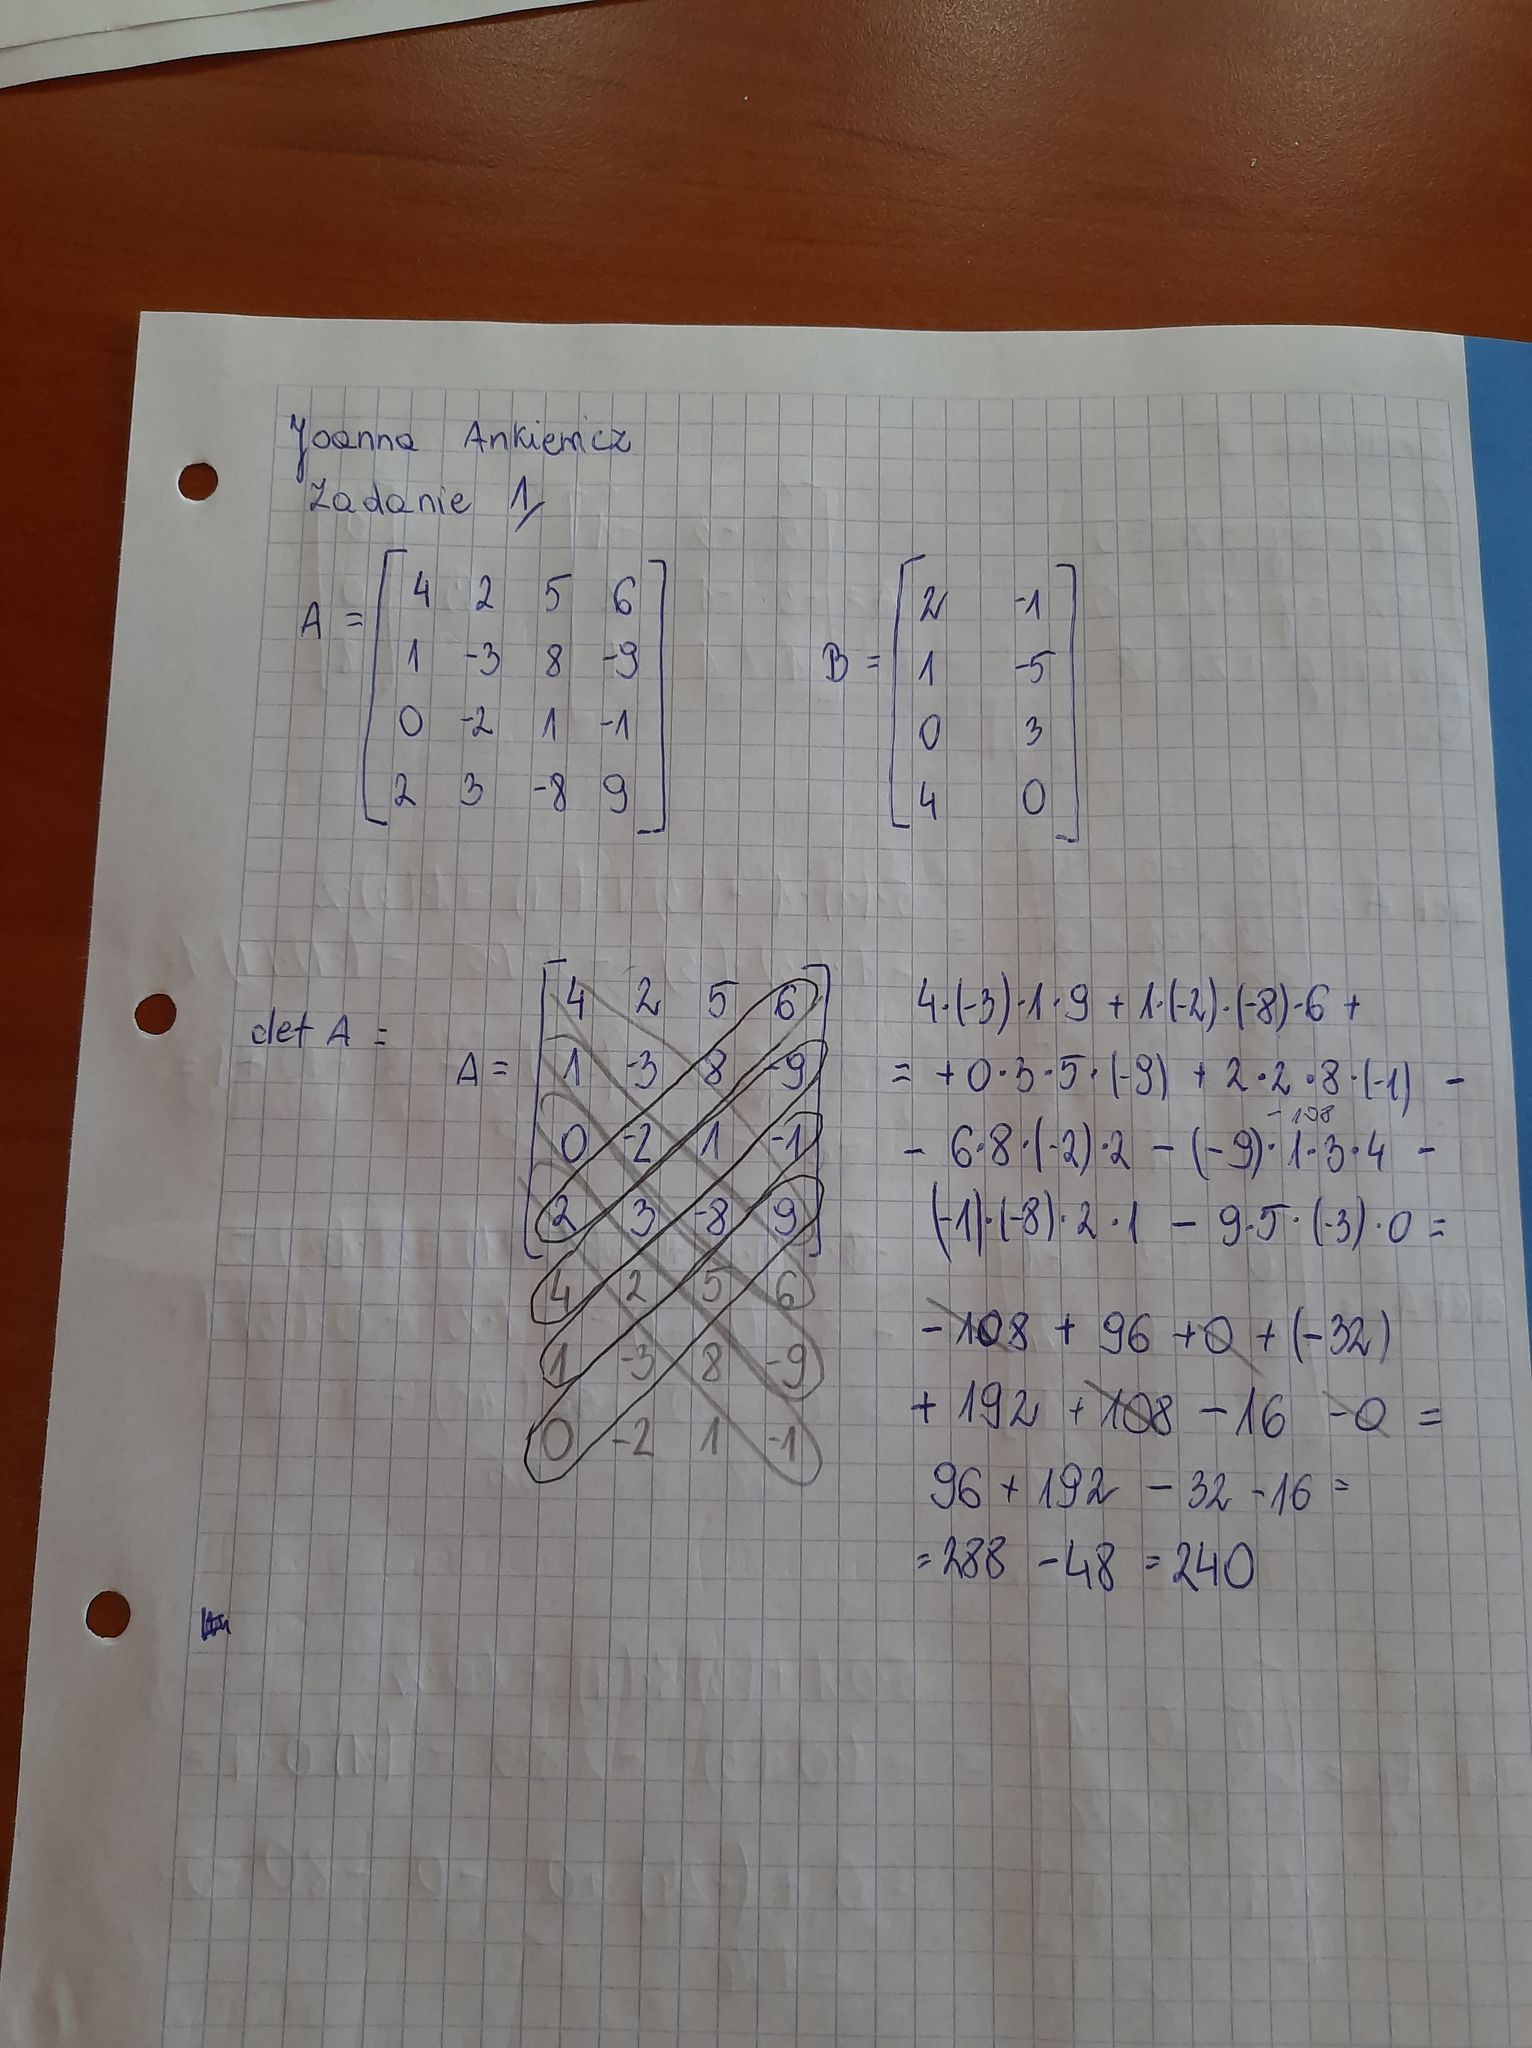 Joanna Ankiewicz
Zadanie 1/
A = [ 4 2 5 6
1 -3 8 -9
0 -2 1 -1
2 3 -8 9 ]
B = [ 2 -1
1 -5
0 3
4 0 ]
det A =
A = [ 4 2 5 6
1 -3 8 -9
0 -2 1 -1
2 3 -8 9 ]
4 2 5 6
1 -3 8 -9
0 -2 1 -1
4·(-3)·1·9 + 1·(-2)·(-8)·6 +
= +0·3·5·(-9) + 2·2·8·(-1) -
-108
- 6·8·(-2)·2 - (-9)·1·3·4 -
(-1)·(-8)·2·1 - 9·5·(-3)·0 =
-108 + 96 +0 + (-32)
+ 192 +108 - 16 -0 =
96 + 192 - 32 -16 =
= 288 - 48 = 240